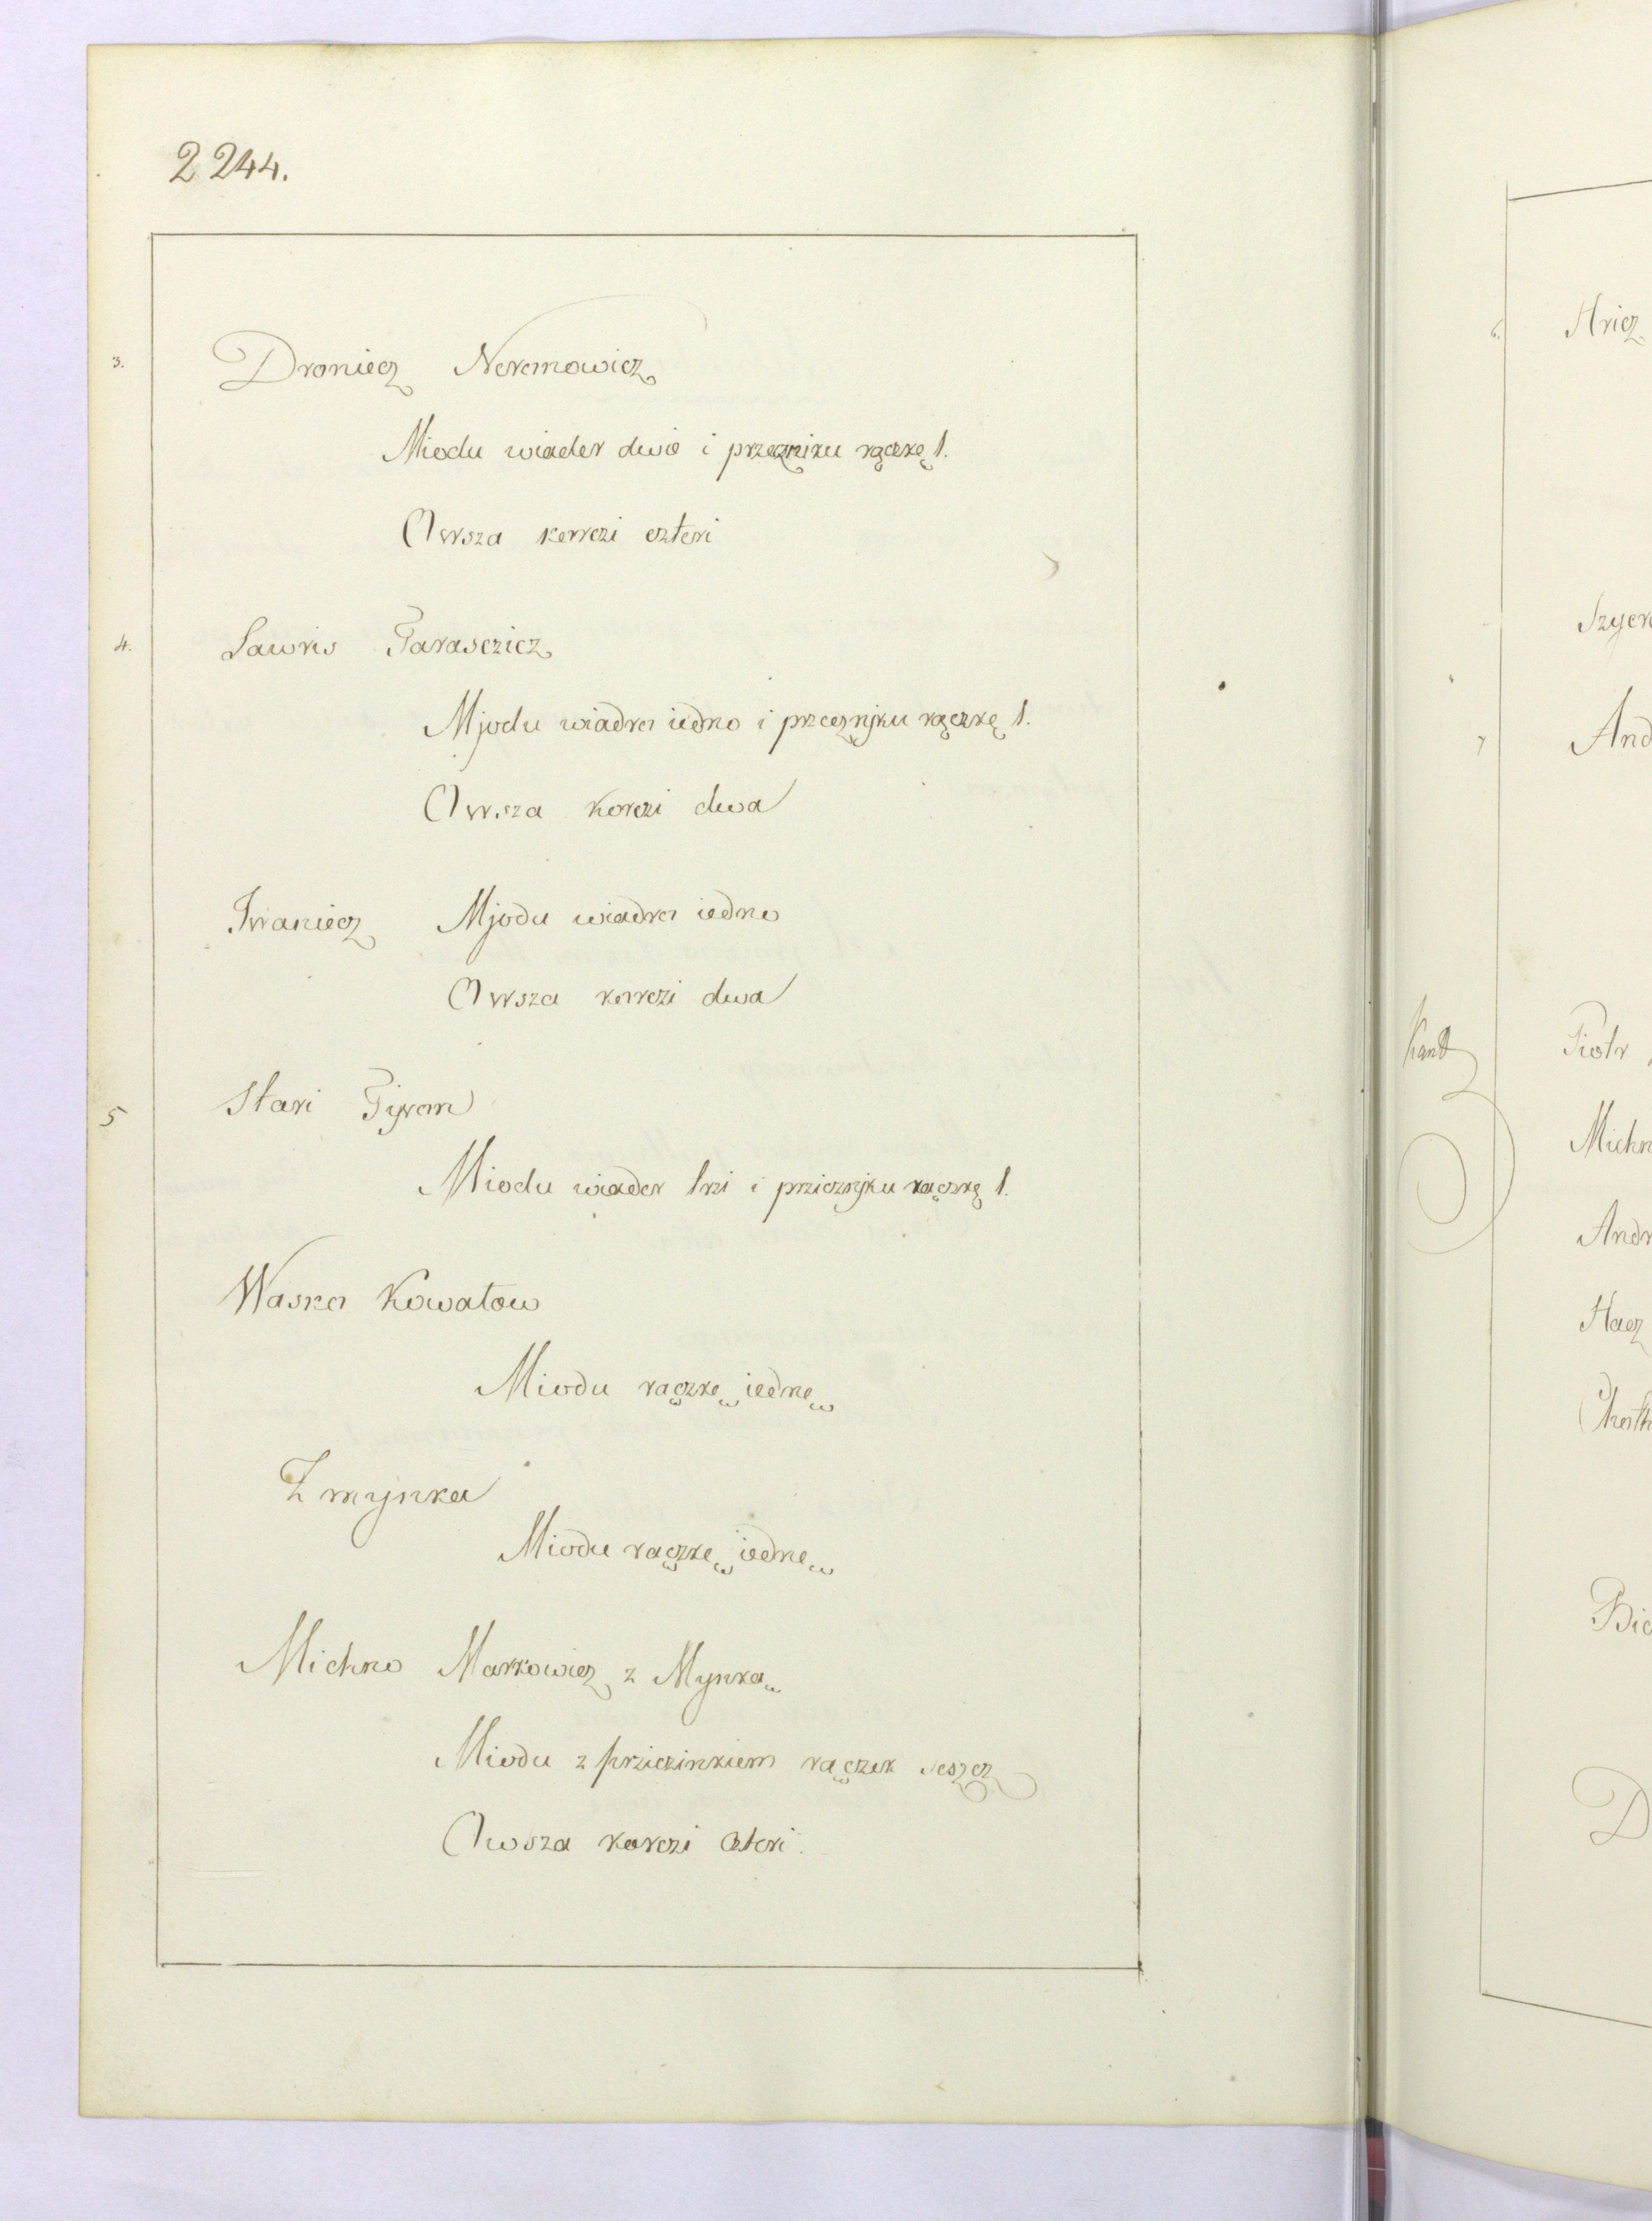 2244.
3. Droniecz Neremowicz
Miodu wiader dwie i przeczniku rączkę 1.
Owsza korczi czteri
4. Lawris Tarasczicz
Mjodu wiadro iedno i przecznjku rączkę 1.
Owsza korczi dwa
Iwaniecz Mjodu wiadro iedno
Owsza korczi dwa
5 Stari Tyrom
Miodu wiader trzi i prziecznjku rączkę 1.
Waska Kowalow
Miodu rączkę iednę
Zmynka
Miodu rączkę iednę
Michno Markowicz z Mynką
Miodu z prziczinkiem rączek seszcz
Owsza korczi czteri.
6. Hricz
Szyer
7 And
Piotr
Michn
Andr
Hacz
Bie
D